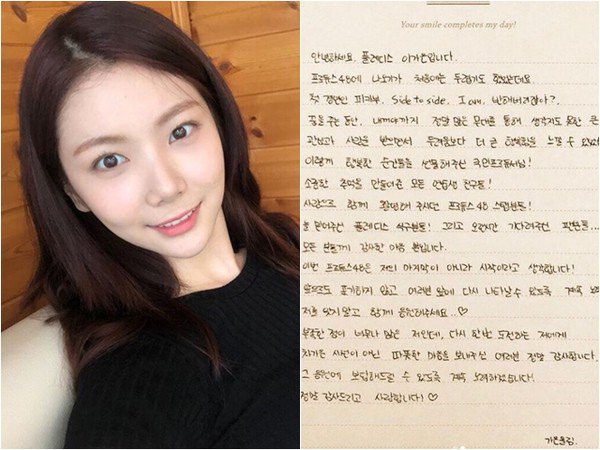 Your smile completes my day!
안녕하세요. 플레디스 이가은입니다.
프로듀스48에 나오기가 처음에는 두렵기도 했었는데요.
첫 경연인 피카부, Side to side, I am, 반해버리잖아?
꿈을 꾸는 동안, 내꺼야까지 정말 많은 무대를 통해 생각지도 못한 큰
관심과 사랑을 받으면서 두려움보다 더 큰 행복함을 느낄 수 있었
이렇게 행복한 순간들을 선물해주신 국민프로듀서님!
소중한 추억을 만들어준 모든 연습생 친구들!
사랑으로 함께 해주시던 프로듀스48 스탭분들!
믿어주신 플레디스 식구분들! 그리고 오랫동안 기다려주신 팬분들...
모든 분들께 감사한 마음 뿐입니다.
이번 프로듀스48은 저의 마지막이 아니라 시작이라고 생각합니다!
앞으로도 포기하지 않고 여러분 앞에 다시 나타날 수 있도록 계속 노
저를 잊지 말고 함께 응원해주세요..♡
부족한 점이 너무나 많은 저인데, 다시 한번 도전하는 저에게
차가운 시선이 아닌 따뜻한 마음을 보내주신 여러분 정말 감사합니다.
그 응원에 보답해드릴 수 있도록 계속 노력하겠습니다!
정말 감사드리고 사랑합니다! ♡
가은올림.